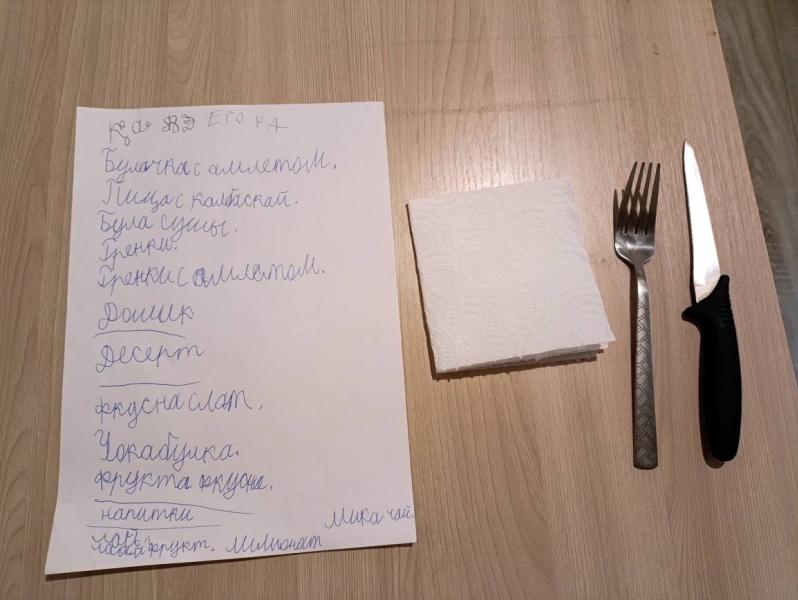 Кафэ ЕГОРА
Булачка с амлетом.
Пица с калбаскай.
Була сушы.
Гренки.
Гренки с амлетом.
Дошик
Десерт
фкусна слат.
Чокабулка.
фрукта фкусна.
напитки
Мика чай.
чай.
фрукт. Милионат